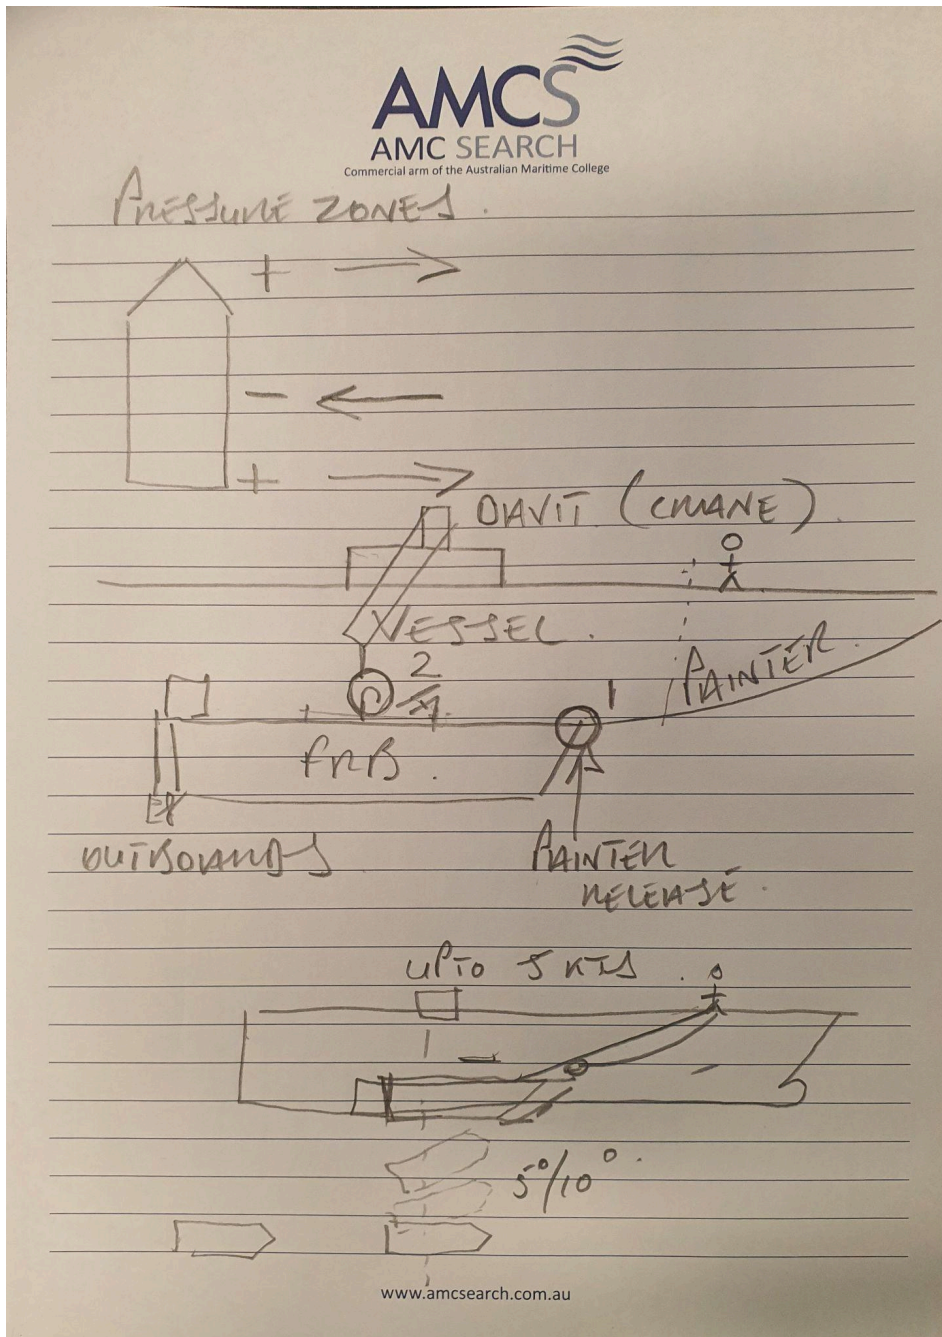 AMCS
AMC SEARCH
Commercial arm of the Australian Maritime College
PRESSURE ZONES.
+
-
+
DAVIT (CRANE).
VESSEL.
2
1
PAINTER.
FRB.
OUTBOARDS
PAINTER
RELEASE.
UP TO 5 KTS.
5°/10°.
www.amcsearch.com.au